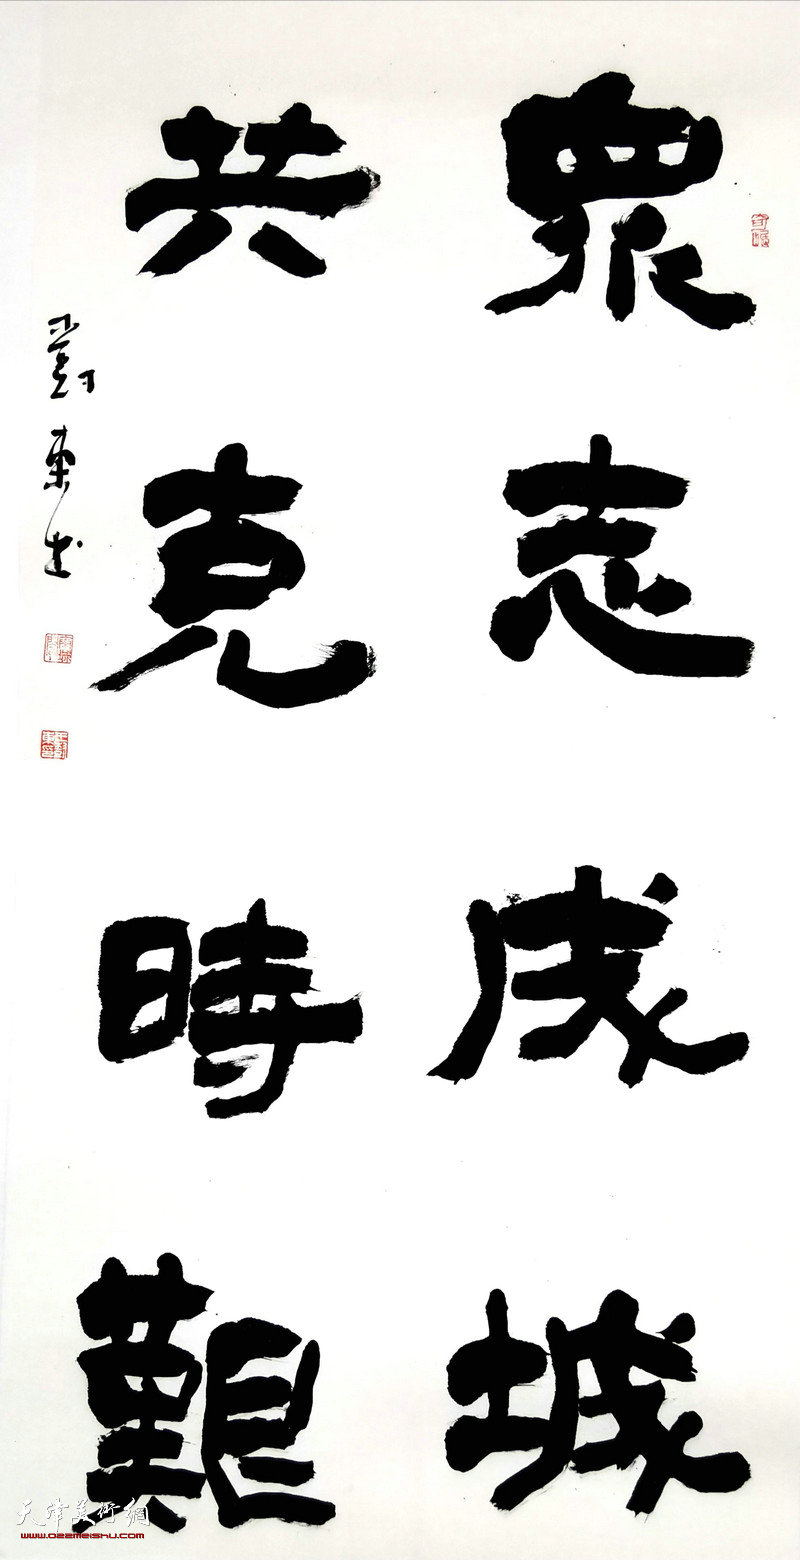 眾志成城
共克時艱
劉東书
天津美術網
www.022meishu.com